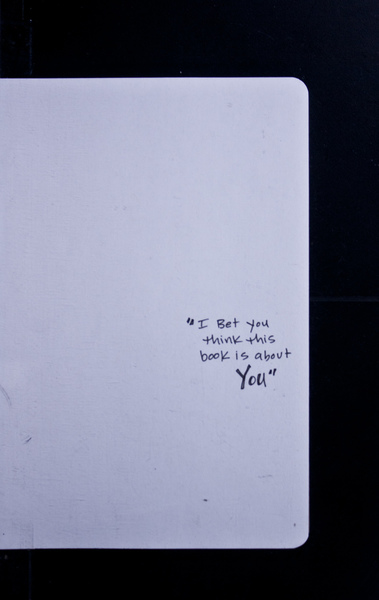 "I Bet you
think this
book is about
You"